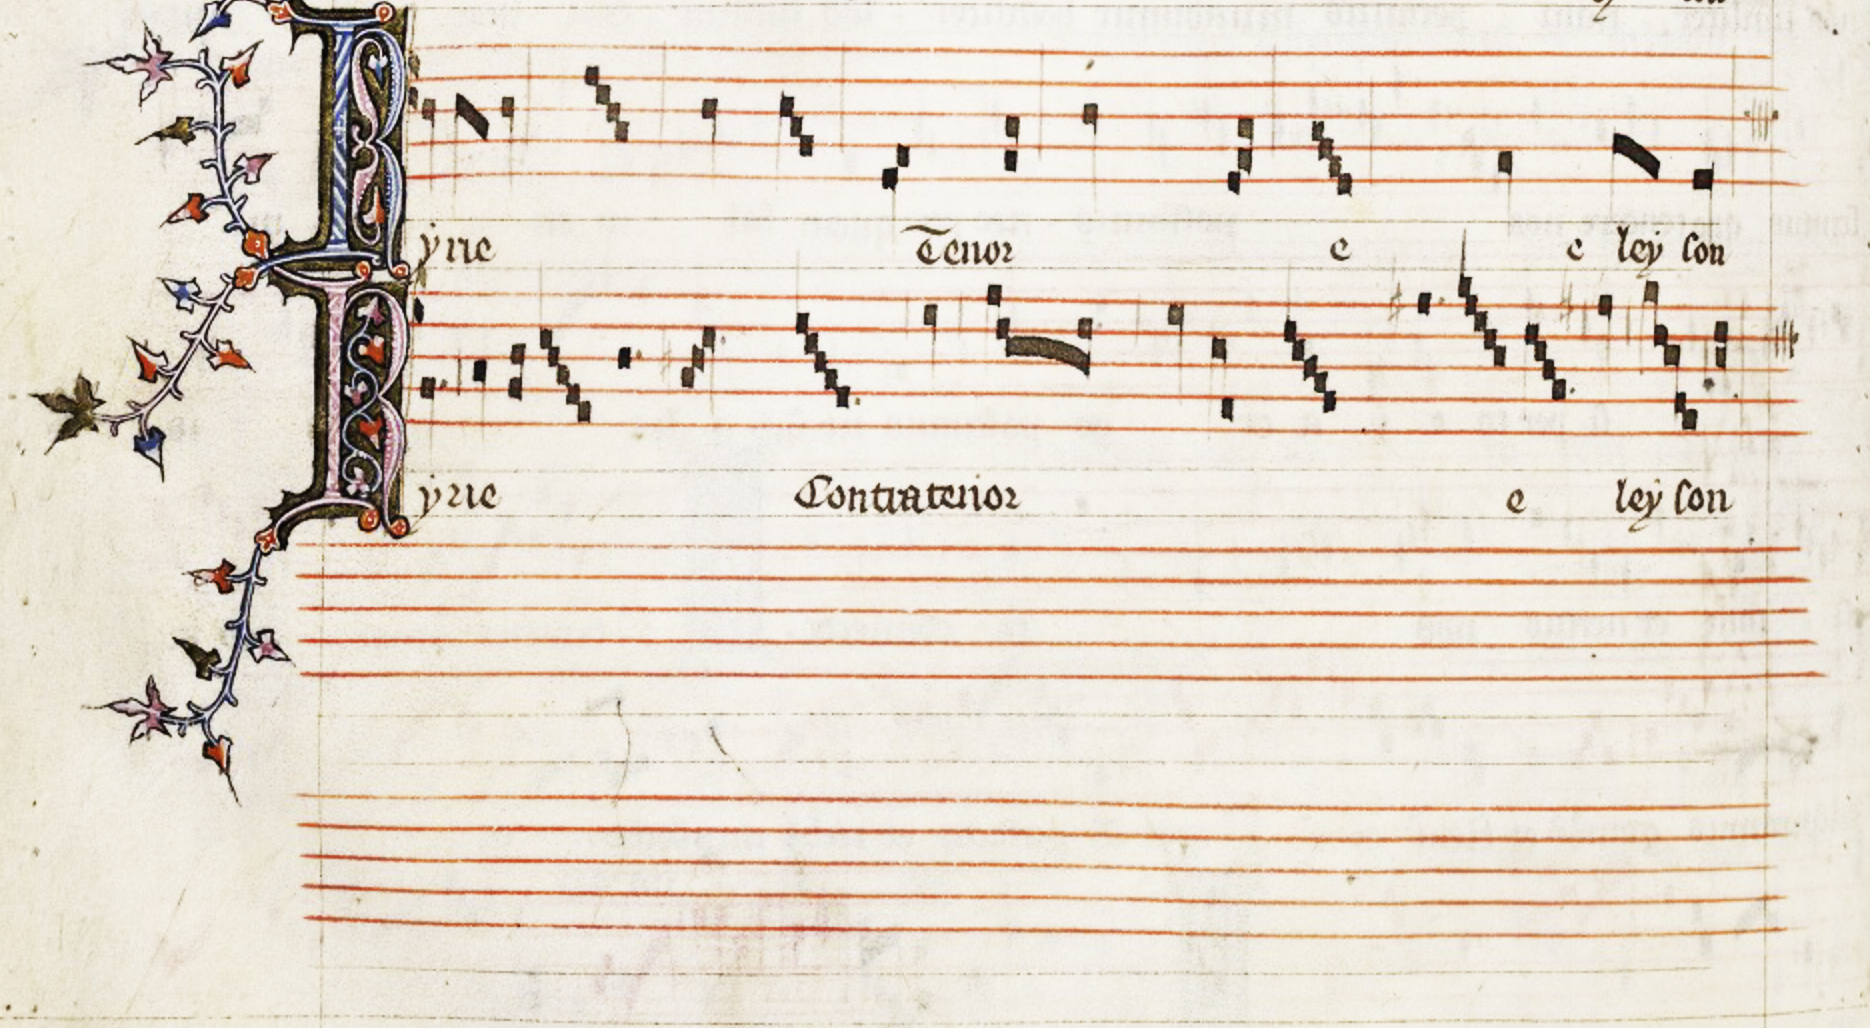 Kyrie Tenor e e ley son
Kyrie Contratenor e ley son